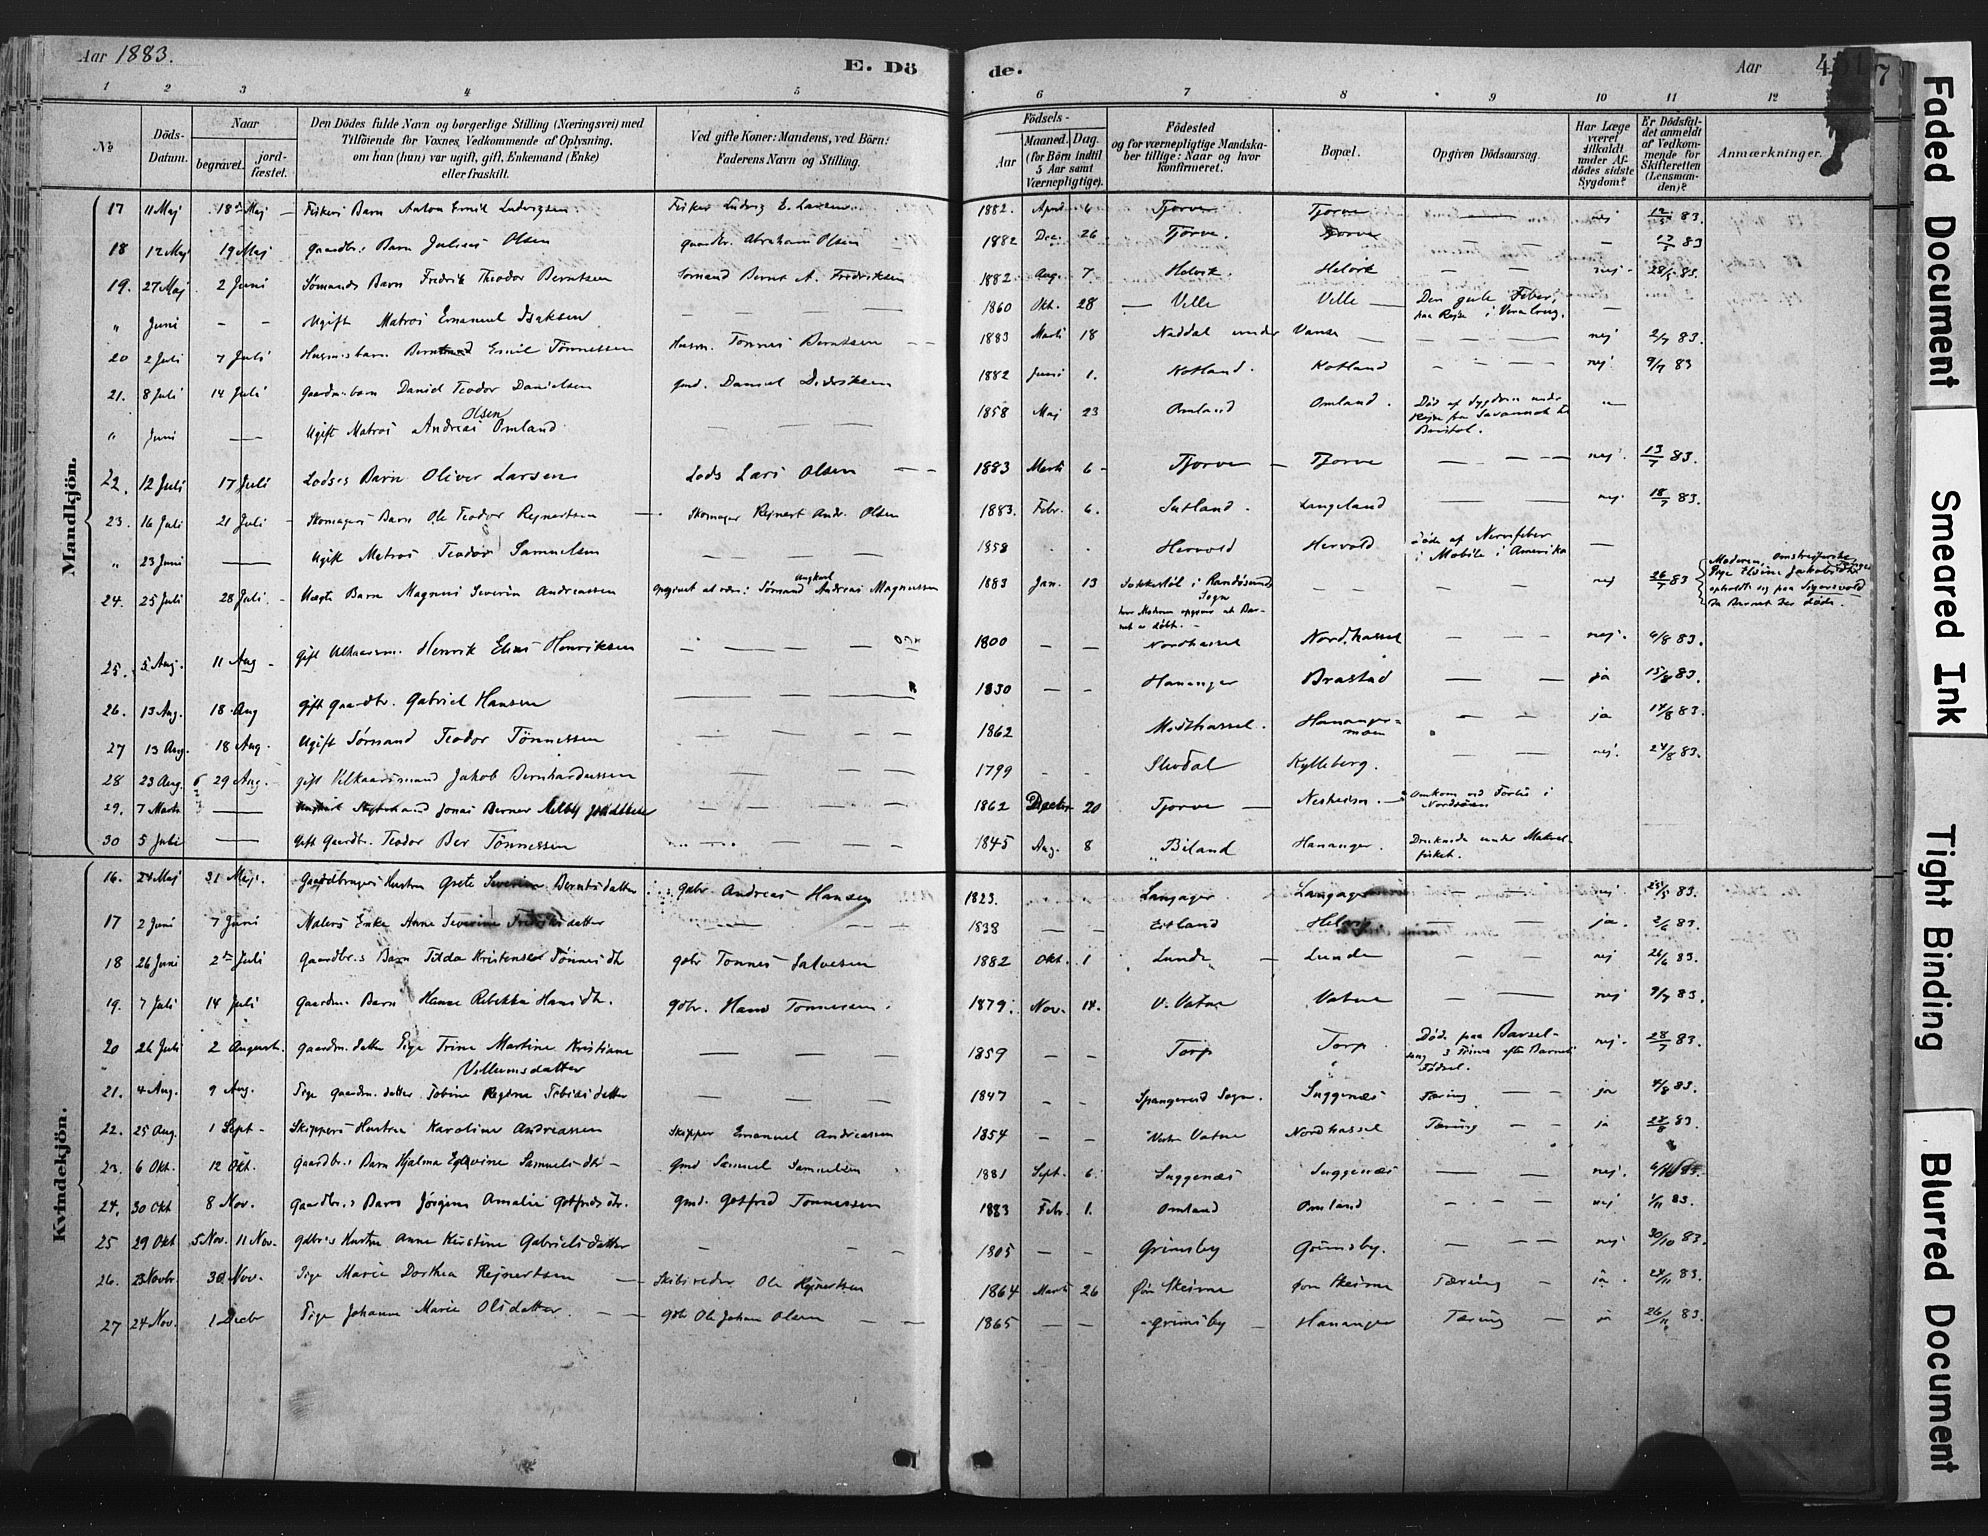 Aar 1883.
E. Dö de.
Aar
1 2 3 4 5 6 7 8 9 10 11 12
№
Döds-Datum.
Naar
begravet. jordfæstet.
Den Dödes fulde Navn og borgerlige Stilling (Næringsvei) med
Tilföiende for Voxnes Vedkommende af Oplysning,
om han (hun) var ugift, gift, Enkemand (Enke)
eller fraskilt.
Ved gifte Koner: Mandens, ved Börn:
Faderens Navn og Stilling.
Födsels-
Aar Maaned. Dag.
(for Börn indtil
5 Aar samt
Værnepligtige).
Födested
og for værnepligtige Mandska-
ber tillige: Naar og hvor
konfirmeret.
Bopæl.
Opgiven Dödsaarsag.
Har Læge
været
tilkaldt
under Af-
dödes sidste
Sygdom?
Er Dödsfal-
det anmeldt
af Vedkom-
mende for
Skifteretten
(Lensman-
den)?
Anmærkninger.
Mandkjön.
17 11 Maj 18 Maj Fiskers Barn Anton Emil Ludvigsen Fisker Ludvig E. Larsen 1882. April 6 Tjorve Tjorve nej 12/5 83.
18 12 Maj 19 Maj Gaardbr.s Barn Julius Olsen Gaardbr. Abraham Olsen 1882 Dec. 26 Tjorve. Tjorve 83
19. 27 Maj 2 Juni Sömands Barn Fredrik Theodor Berntsen Sömand Bernt A. Fredriksen 1882 Aug. 7 Helvik. Helvik nej. 28/5 83.
" Juni Ugift Matros Emanuel Isaksen 1860 Okt. 28 Velle Velle Den gule Feber,
paa Rejse i Vera Cruz.
20 2 Juli 7 Juli Husm.s barn Emil Tönnessen Husm. Tönnes Berntsen 1883 Marts 18 Naddal under Vanse nej 2/7 83.
21. 8 Juli 14 Juli Gaardm. barn Daniel Teodor Danielsen Gmd. Daniel Didriksen 1882 Juni 1. nej. 9/7 83
" Juni Ugift Matros Andreas Olsen Omland 1858 Maj 23 Omland Omland. Död af Sygdom under
Rejse fra Savannah til
Bristol.
22. 12 Juli 17 Juli Lodses Barn Oliver Larsen Lods Lars Olsen 1883 Marts 6 Tjorve Tjorve nej. 13/7 83.
23. 16 Juli 21 Juli Skomagers Barn Ole Teodor Rejnertsen Skomager Rejnert Andr. Olsen 1883. Febr. 6. Langeland nej. 18/7 83.
" 23 Juni Ugift Matros Teodor Samuelsen 1858 Hervold Hervold döde af Nervefeber
i Mobile i Amerika
24. 25 Juli 28 Juli Uægte Barn Magnus Severin Andreassen Opgivet at være: Sömand Ungkarl Andreas Magnussen 1883 Jan. 13 i Randösund
Sogn
hvor Moderen opgiver at Bar-
net er döbt. nej 26/7 83 Moderen, omstreifende
Pige Elsine
opholdt sig paa Sigersvold
da Barnet her döde.
25. 5. Aug. 11 Aug. Gift Vilkaarsm. Henrik Elias Henriksen 1800 Nordhassel Nordhassel nej. 6/8 83.
26. 13 Aug. 18 Aug Gift Gaardbr. Gabriel Hansen 1830 Hananger Brastad ja 15/8 83.
27 13 Aug. 18 Aug. Ugift Sömand Teodor Tönnessen 1862 Midthassel. Hananger-
moen ja 14/8 83.
28 23 Aug. 29 Aug. Gift Vilkaarsmand Jakob Bernhardussen 1799 Slevdal Kylleberg. nej. 24/8 83.
29. 7 Marts Ungkarl Styrmand Jonas Berner 1862 20 Tjorve Nesheim. Omkom ved Forlis i
Nordsöen
30 5 Juli Gift Gaardbr. Teodor Ber Tönnessen 1845 Aug. 8 Biland Hananger. Druknede under Makrel-
fisket.
Kvindekjön.
16. 24 Maj 31 Maj. Gaardbrugers Hustru Grete Severine Berntsdatter Gabr. Andreas Hansen 1823. Langager Langager nej 83.
17 2 Juni 7 Juni Malers Enke Anne Severine datter 1838 Estland Helvig. ja. 2/6 83.
18 26 Juni 2 Juli Gaardbr.s Barn Tilda Kristense Tönnesdtr Gabr Tönnes Salvesen 1882 Okt. 1 Lunde Lunde nej 26/6 83.
19. 7 Juli 14 Juli Gaardm. Barn Hanne Rebekka Hansdtr. Gabr. Hans Tönnesen 1879. Nov. 14. V. Vatne Vatne nej 9/7 83.
20 26 Juli 2 August. Gaardm. datter Pige Trine Martine Kristiane
Villumsdatter 1859 Torp Torp Död paa Barsel-
seng 3 Timer efter Barnets
Födsel. nej. 28/7 83.
21. 4 Aug. 9 Aug. Pige Gaardm. datter Tobine Regine Tobiasdatter 1847 Spangereid Sogn. Suggenæs Tæring ja 4/8 83.
22. 25 Aug. 1 Sept Skippers Hustru Karoline Andreassen Skipper Emanuel Andreassen 1854 Vestre Vatne Nordhassel Tæring ja 28/8 83.
23. 6 Okt. 12 Okt. Gaardbr.s Barn Hjalma Samuelsdtr Gmd Samuel Samuelsen 1881 Sept. 6. Suggenæs Suggenæs nej.
24. 30 Okt 8 Nov. Gaardbr.s Barn Jörgine Amalie Gotfredsdtr. Gmd. Gotfred Tönnessen 1883 Febr. 1. Omland Omland nej 1/11 83.
25 29 Okt 5 Nov. 11 Nov. Gabr.s Hustru Anne Kirstine Gabrielsdatter 1805 Grimsby Grimsby. nej. 30/10 83.
26. 23 Novbr. 30 Nov. Pige Marie Dorthea Rejnertsen Skibsreder Ole Rejnertsen 1864 Marts 26 Öv. Skeime öv. Skeime Tæring ja. 24/11 83.
27 24 Nov. 1 Decbr Pige Johanne Marie Olsdatter Gabr Ole Johan Olsen 1865 Grimsby Hananger Tæring ja 26/11 83.
Faded Document
Smeared Ink
Tight Binding
Blurred Document